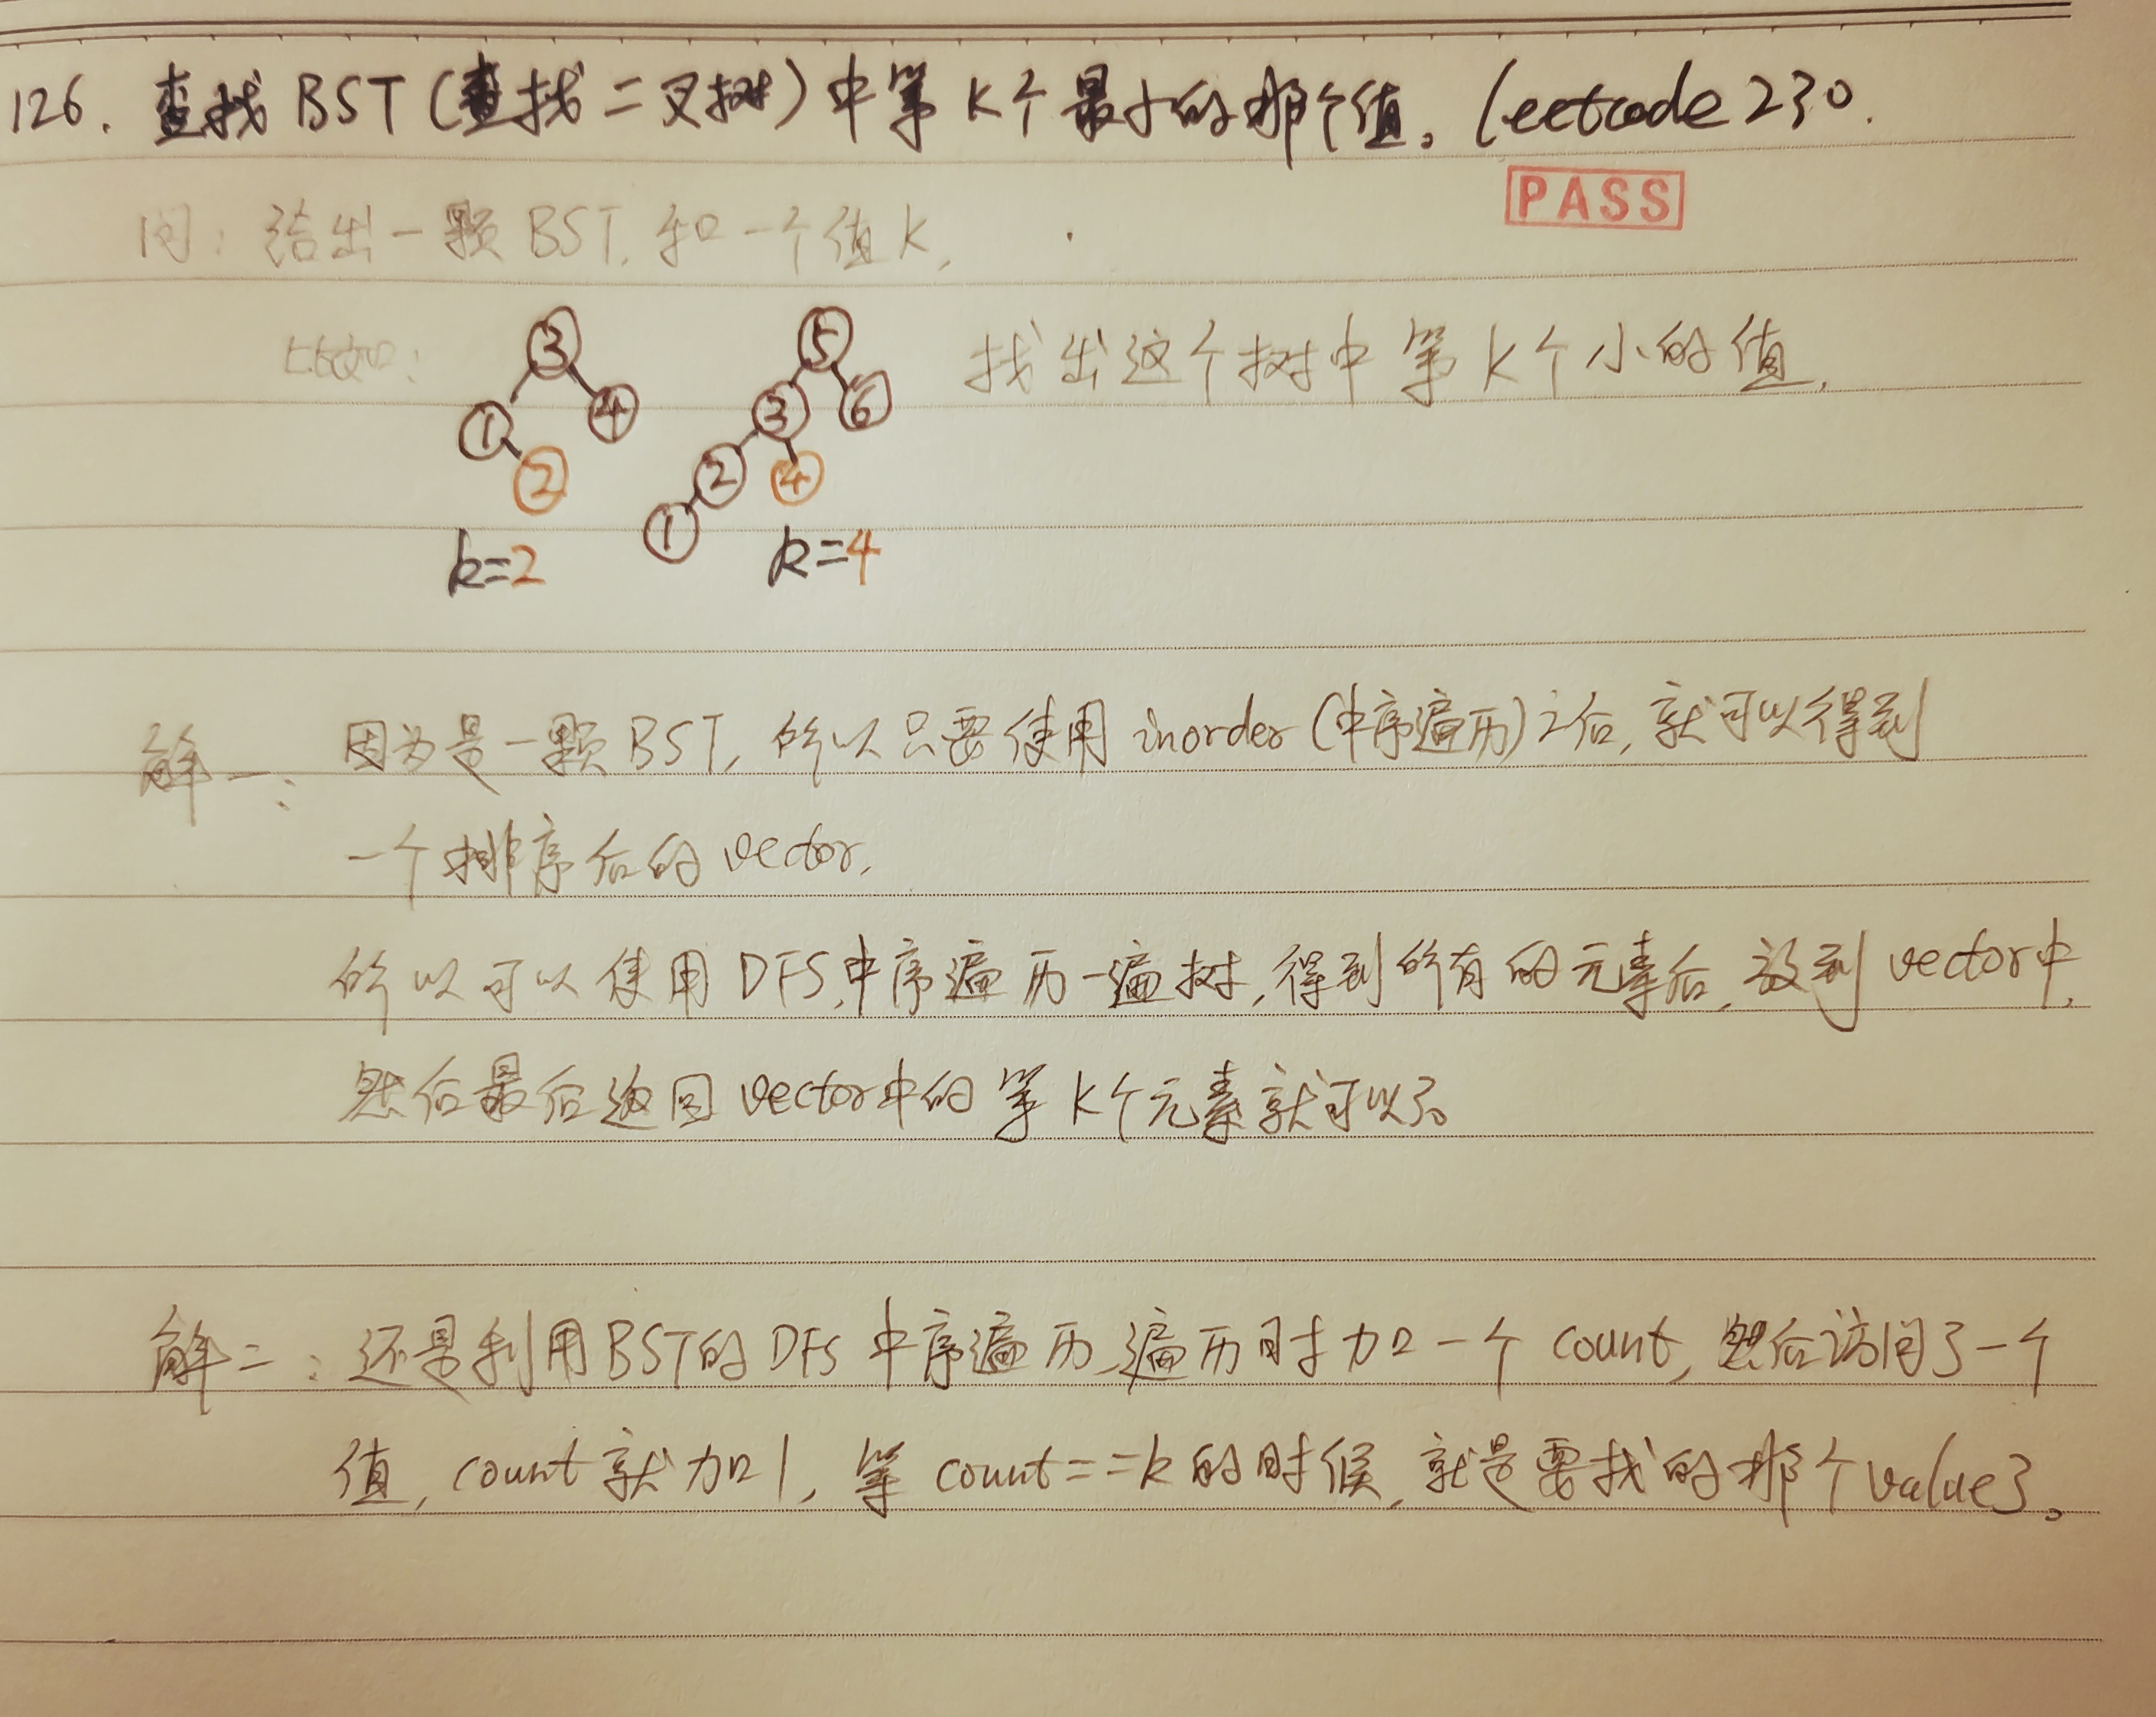 126. 查找BST(查找二叉树)中第K个最小的那个值。leetcode 230.
PASS
问：给出一颗BST, 和一个值K,
比如：
3
1 4
2
k=2
5
3 6
2 4
1
k=4
找出这个树中第K个小的值.
解一：因为是一颗BST, 所以只要使用inorder(中序遍历)之后, 就可以得到
一个排序后的vector,
所以可以使用DFS,中序遍历一遍树,得到所有的元素后,放到vector中,
然后最后返回vector中的第K个元素就可以了。
解二：还是利用BST的DFS中序遍历,遍历时加一个count, 然后访问了一个
值, count就加1, 等count==k的时候, 就是要找的那个value了。